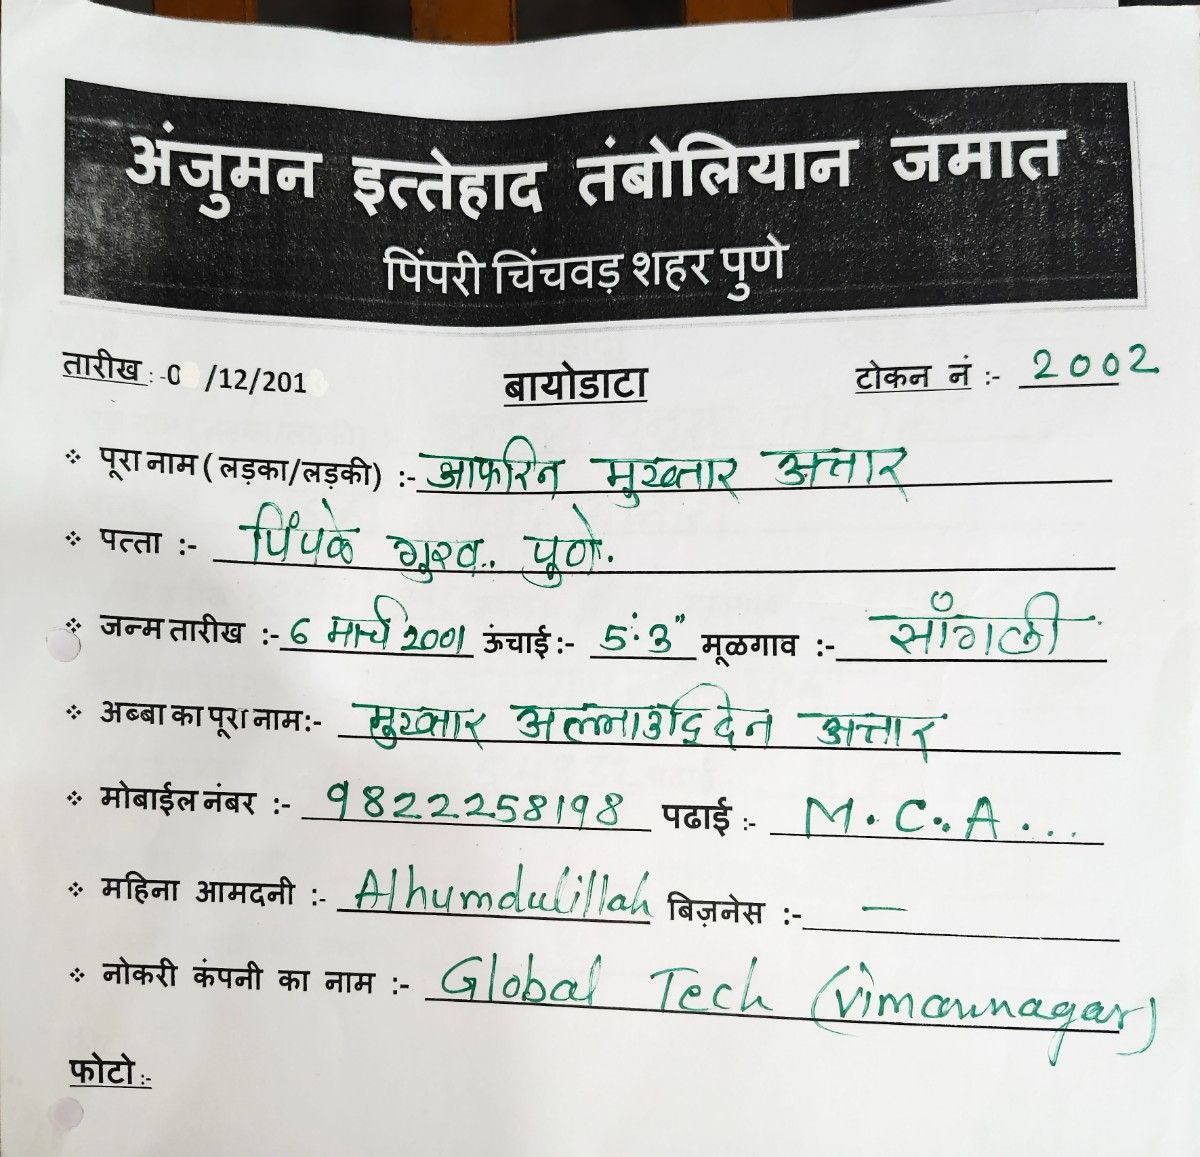 अंजुमन इत्तेहाद तंबोलियान जमात
पिंपरी चिंचवड़ शहर पुणे
तारीख :-0 /12/201 बायोडाटा टोकन नं :- 2002
❖ पूरा नाम ( लड़का/लड़की) :- आफरिन मुख्तार अत्तार
❖ पत्ता :- पिंपळे गुरव.. पुणे.
❖ जन्म तारीख :- 6 मार्च 2001 ऊंचाई:- 5'.3" मूळगाव :- सांगली
❖ अब्बा का पूरा नाम:- मुख्तार अल्लाउद्दिन अत्तार
❖ मोबाईल नंबर :- 9822258198 पढाई :- M.C.A...
❖ महिना आमदनी :- Alhumdulillah बिज़नेस :- —
❖ नोकरी कंपनी का नाम :- Global Tech (vimannagar)
फोटो:-